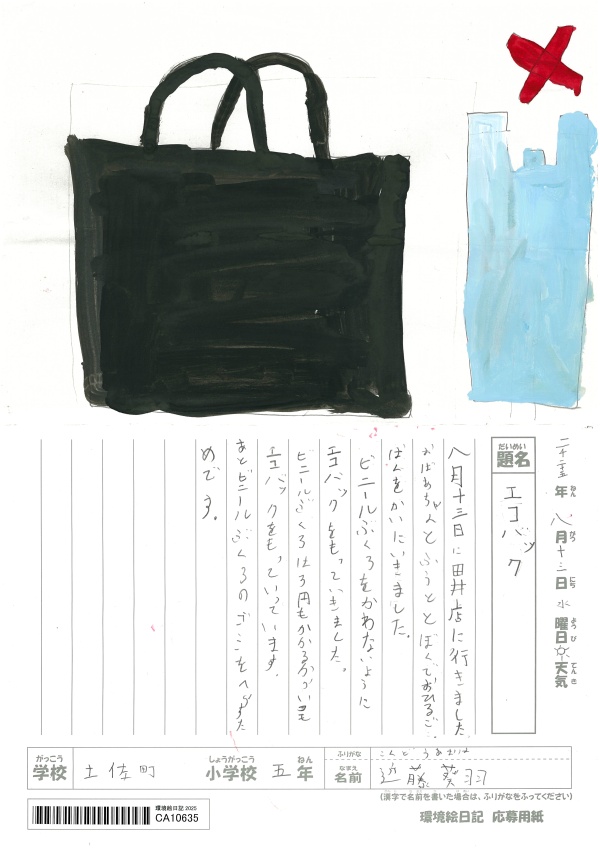 二千二十五年八月十三日水曜日天気
ねん がつ にち ようび てんき
だいめい
題名
エコバック
八月十三日に田井店に行きました。
おばあちゃんとふうととぼくでおひるご
はんをかいにいきました。
ビニールぶくろをかわないように
エコバックをもっていきました。
ビニールぶくろは3円もかかるからいつも
エコバックをもっていっています。
あとビニールぶくろのごみをへらすた
めです。
がっこう
学校
土佐町
しょうがっこう
小学校
五
ねん
年
ふりがな
こんどう あおは
なまえ
名前
近藤 葵羽
(漢字で名前を書いた場合は、ふりがなをふってください)
環境絵日記 2025
CA10635
環境絵日記 応募用紙